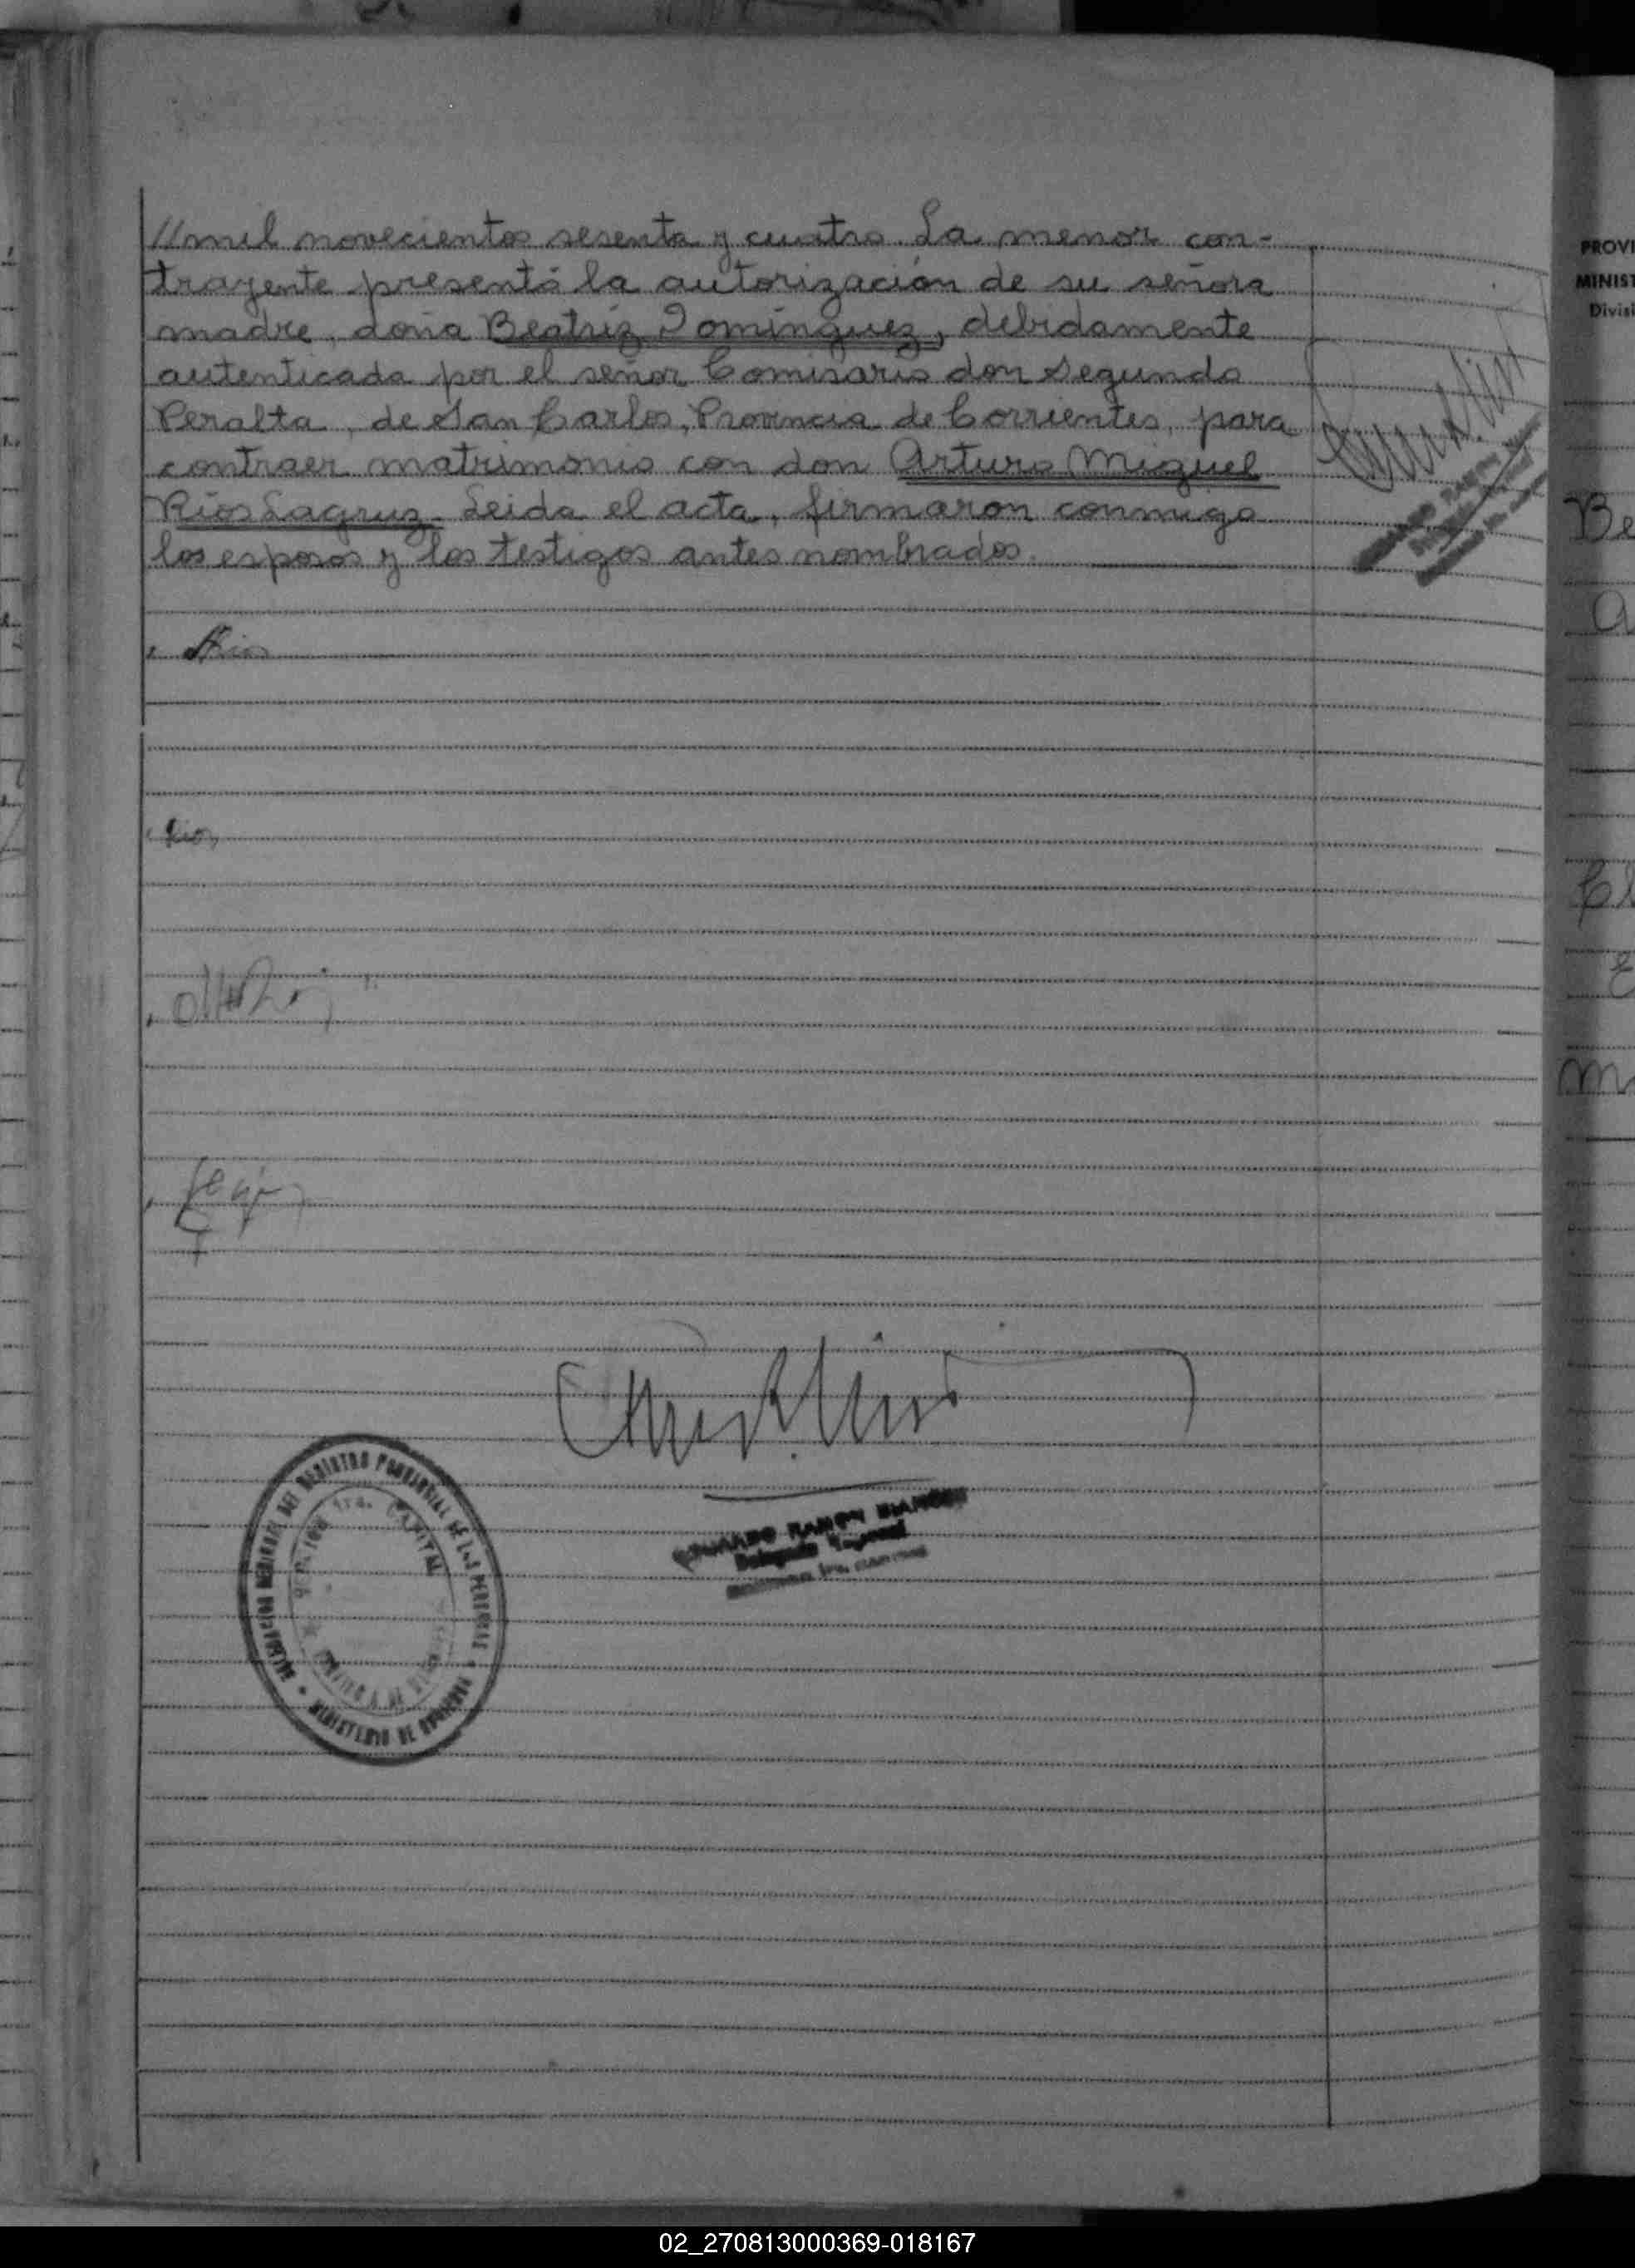 //mil novecientos sesenta y cuatro. La menor con-
trayente presentó la autorización de su señora
madre, doña Beatriz Domínguez, debidamente
autenticada por el señor Comisario don Segundo
Peralta, de San Carlos, Provincia de Corrientes, para
contraer matrimonio con don Arturo Miguel
Ríos Lagruz. Leida el acta, firmaron conmigo
los esposos y los testigos antes nombrados.
RAMON
DEL REGISTRO PROVINCIAL DE LAS PERSONAS
MINISTERIO DE
CAPITAL
02_270813000369-018167
PROVI
MINIST
Divisi
Be